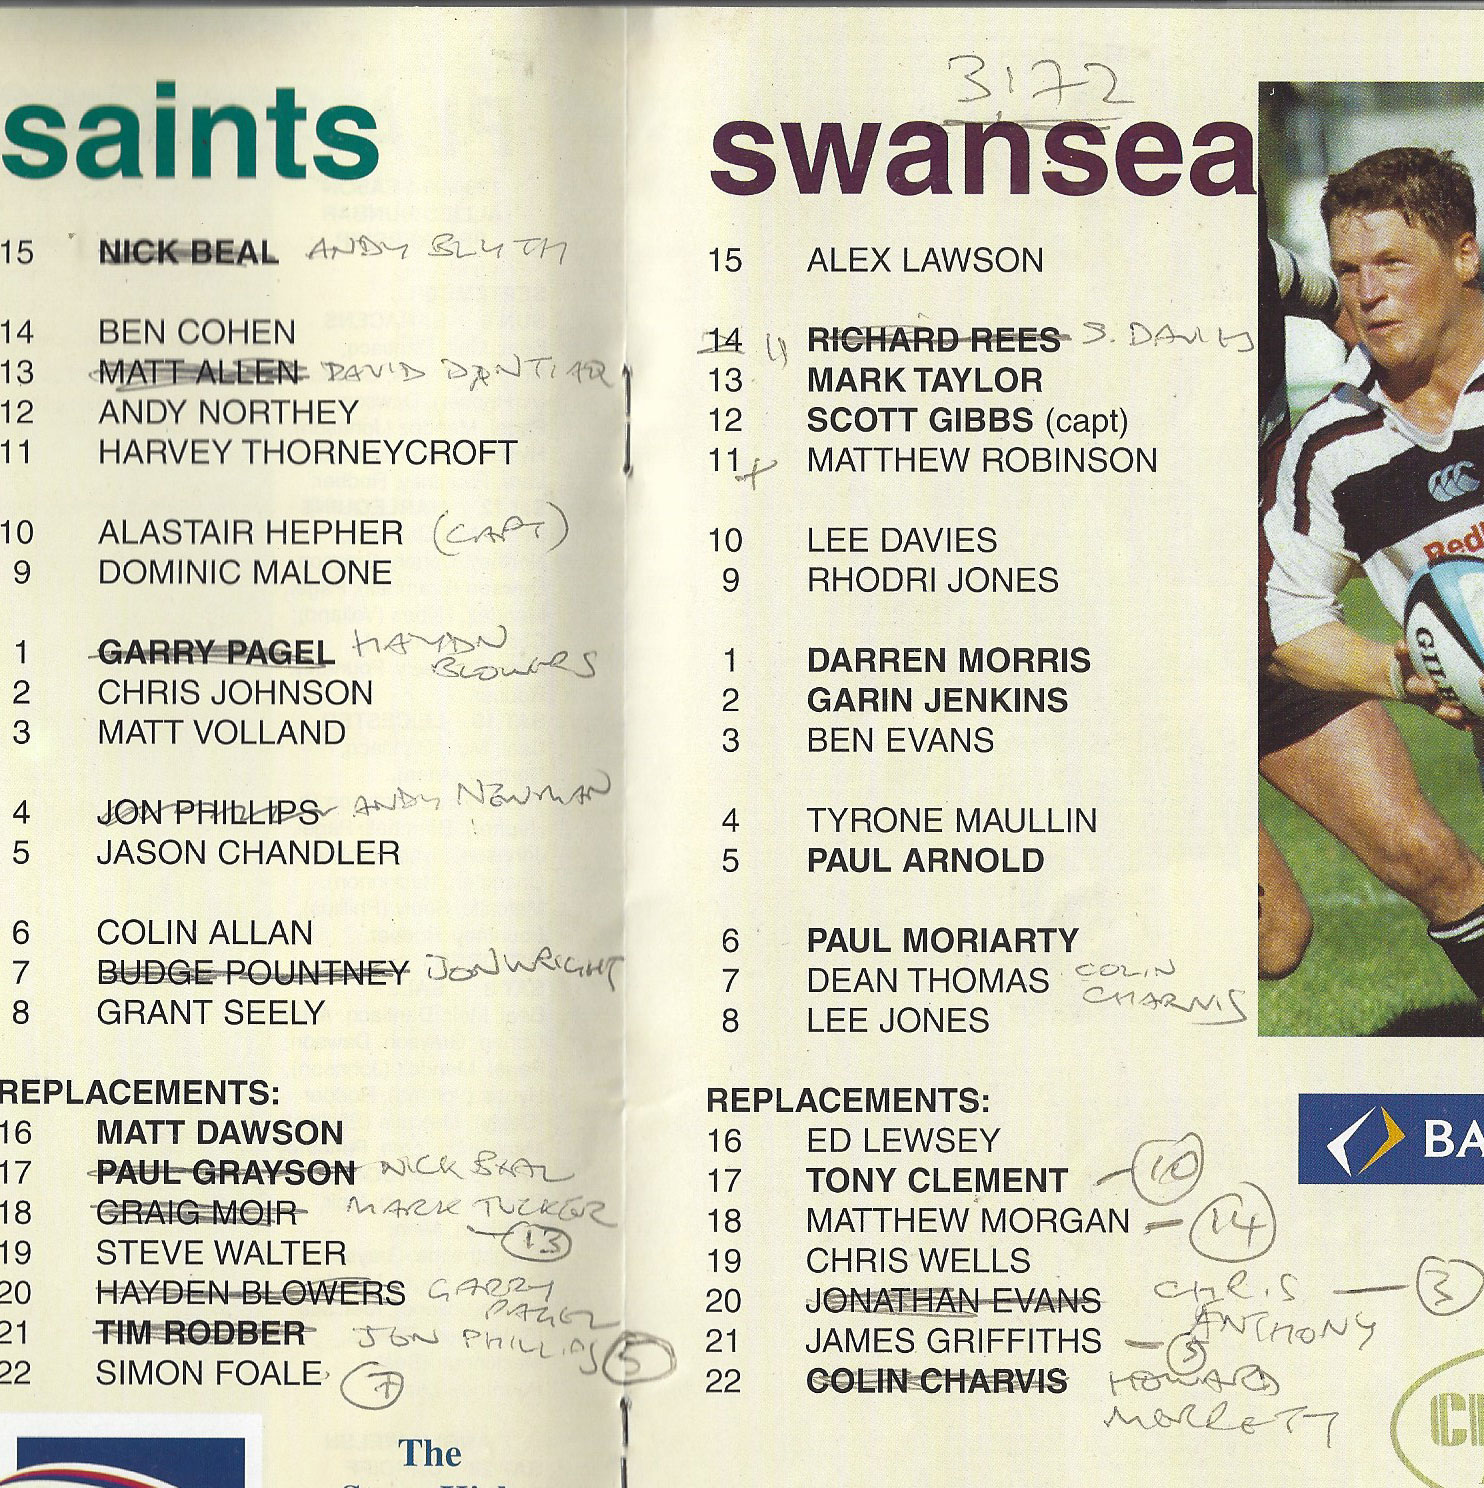 saints
15 NICK BEAL ANDY BLYTH
14 BEN COHEN
13 MATT ALLEN DAVID DANTIAQ
12 ANDY NORTHEY
11 HARVEY THORNEYCROFT
10 ALASTAIR HEPHER (CAPT)
9 DOMINIC MALONE
1 GARRY PAGEL HAYDN
BLOWERS
2 CHRIS JOHNSON
3 MATT VOLLAND
4 JON PHILLIPS ANDY NEWMAN
5 JASON CHANDLER
6 COLIN ALLAN
7 BUDGE POUNTNEY JON WRIGHT
8 GRANT SEELY
REPLACEMENTS:
16 MATT DAWSON
17 PAUL GRAYSON NICK BEAL
18 CRAIG MOIR MARK TUCKER
13
19 STEVE WALTER
20 HAYDEN BLOWERS GARRY
PAGEL
21 TIM RODBER JON PHILLIPS 5
22 SIMON FOALE 7
The
3172
swansea
15 ALEX LAWSON
14 RICHARD REES S. DAVIES
13 MARK TAYLOR
12 SCOTT GIBBS (capt)
11 MATTHEW ROBINSON
10 LEE DAVIES
9 RHODRI JONES
1 DARREN MORRIS
2 GARIN JENKINS
3 BEN EVANS
4 TYRONE MAULLIN
5 PAUL ARNOLD
6 PAUL MORIARTY
7 DEAN THOMAS COLIN
CHARVIS
8 LEE JONES
REPLACEMENTS:
16 ED LEWSEY
17 TONY CLEMENT - 10
18 MATTHEW MORGAN - 14
19 CHRIS WELLS
20 JONATHAN EVANS CHRIS - 3
ANTHONY
21 JAMES GRIFFITHS - 5
22 COLIN CHARVIS HOWARD
MORRETT
Red
GILB
BA